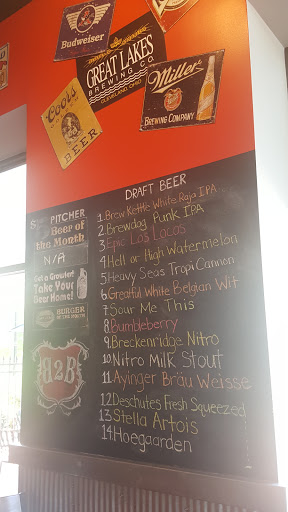 Budweiser
GREAT LAKES
BREWING CO.
CLEVELAND, OHIO
Miller
BREWING COMPANY
Coors
BEER
PITCHER
Beer of
the Month
N/A
Got a Growler?
Take Your
Beer Home!
BURGER
OF THE MONTH
B2B
DRAFT BEER
1. Brew Kettle White Raja IPA
2. Brewdog Punk IPA
3. Epic Los Locos
4. Hell or High Watermelon
5. Heavy Seas Tropi Cannon
6. Greatful White Belgian Wit
7. Sour Me This
8. Bumbleberry
9. Breckenridge Nitro
10. Nitro Milk Stout
11. Ayinger Bräu Weisse
12. Deschutes Fresh Squeezed
13. Stella Artois
14. Hoegaarden